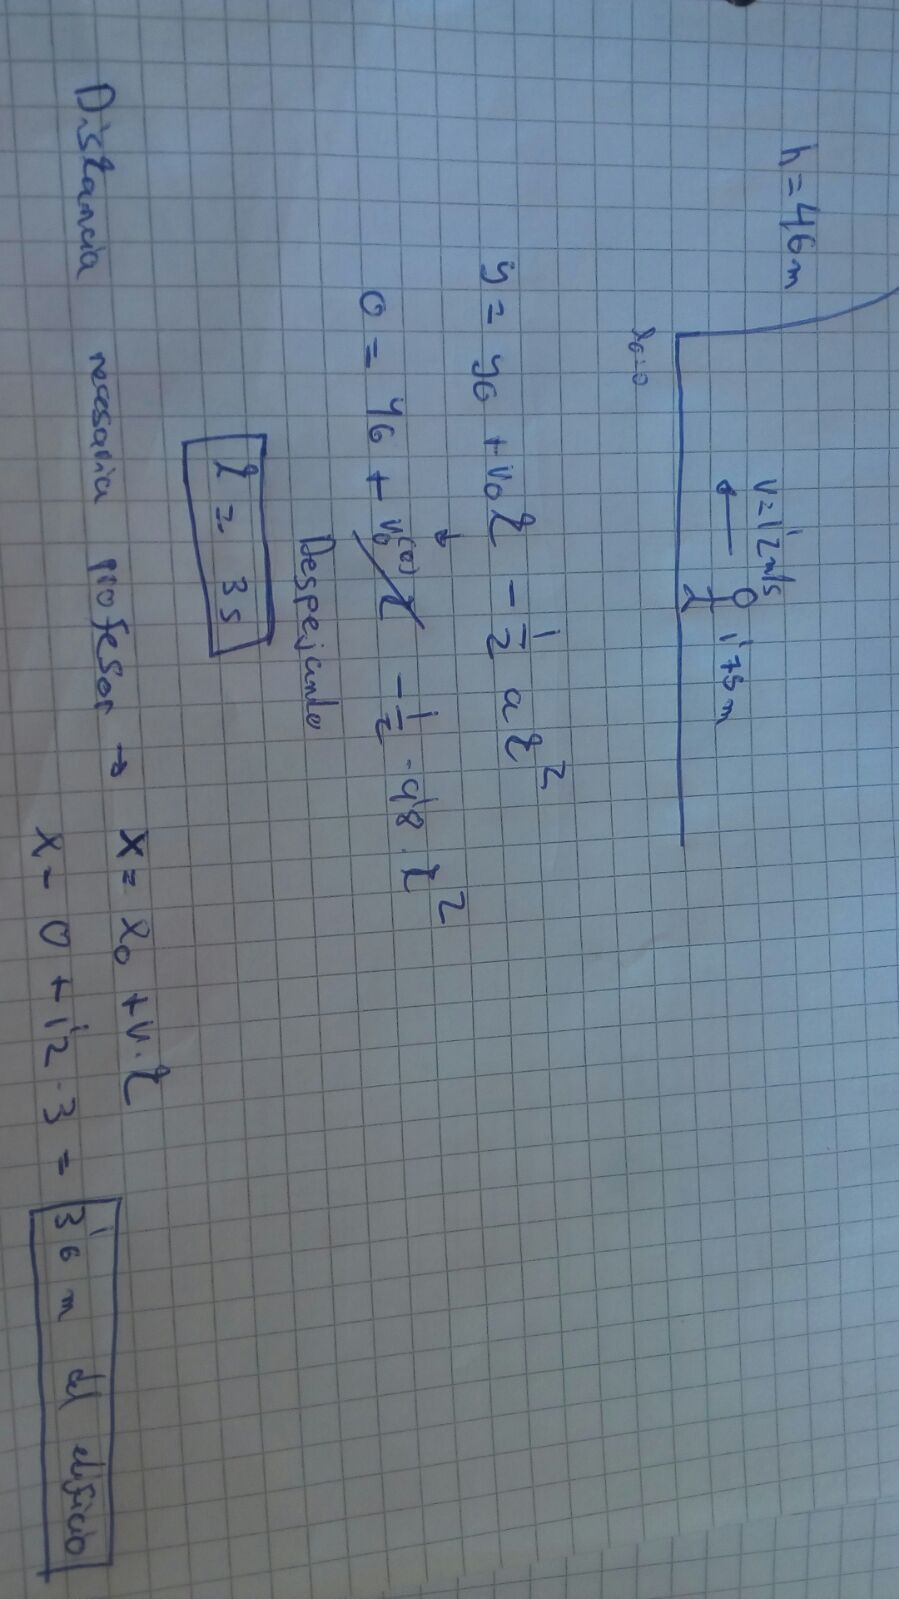 h = 46 m
v = 1'2 m/s
1'75 m
x₀=0
y = y₀ + v₀t - 1/2 at²
0 = 46 + v₀⁽⁰⁾t - 1/2 · 9'8 · t²
Despejando
t = 3 s
Distancia necesaria profesor → x = x₀ + v · t
x = 0 + 1'2 · 3 = 3'6 m del edificio